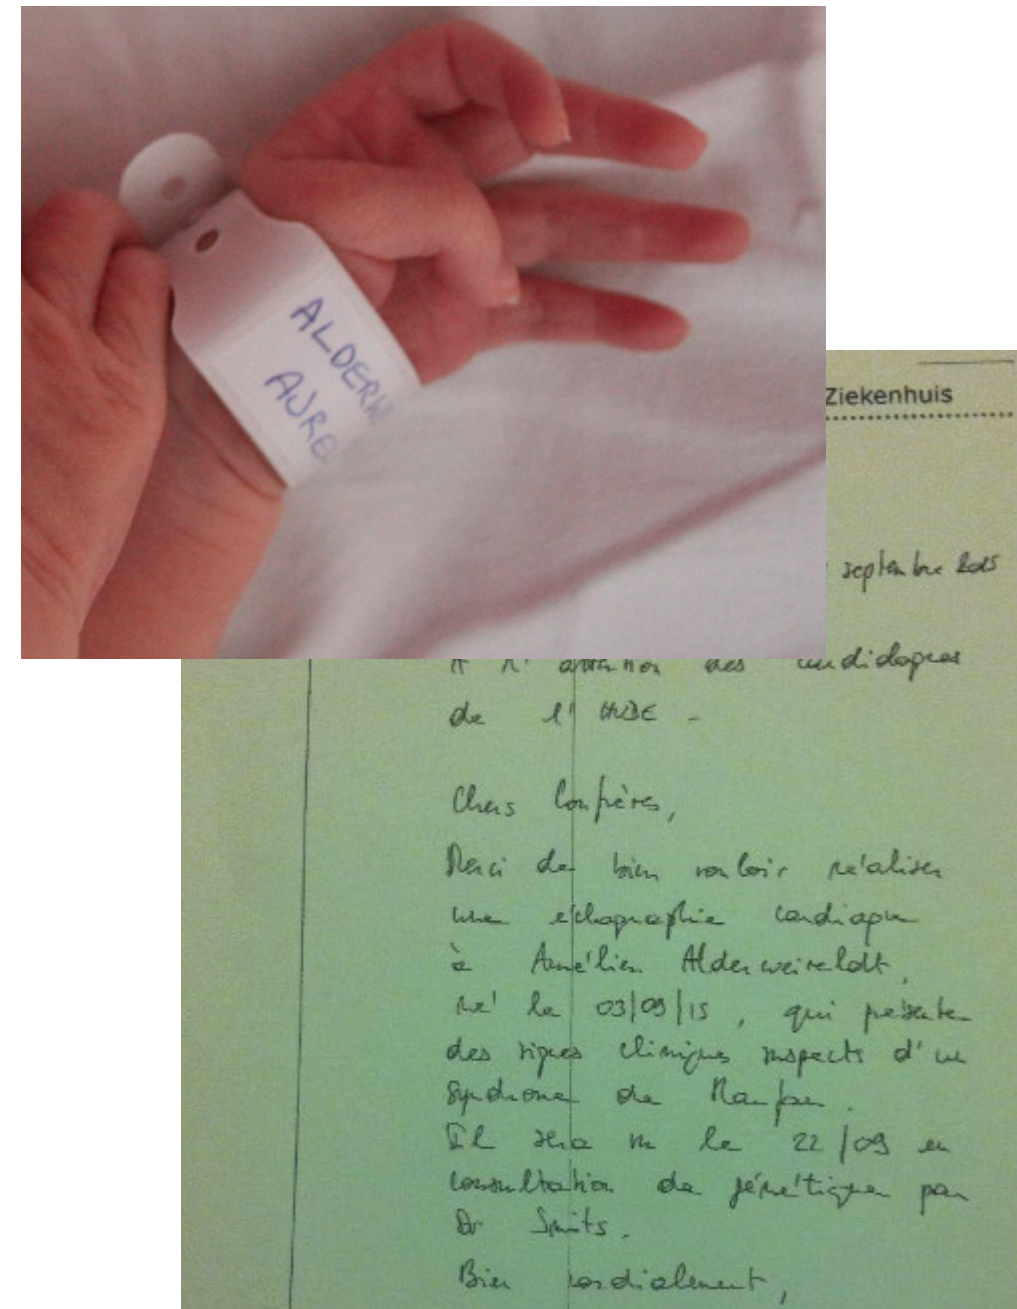 ALDERW
AURE
Ziekenhuis
septembre 2015
A l'attention des cardiologues
de l'HUDE -
Chers Confrères,
Merci de bien vouloir réaliser
une échographie cardiaque
à Aurélien Alderweireldt,
né le 03/09/15, qui présente
des signes cliniques suspects d'un
syndrome de Marfan.
Il sera vu le 22/09 en
consultation de génétique par
Dr Smits.
Bien cordialement,